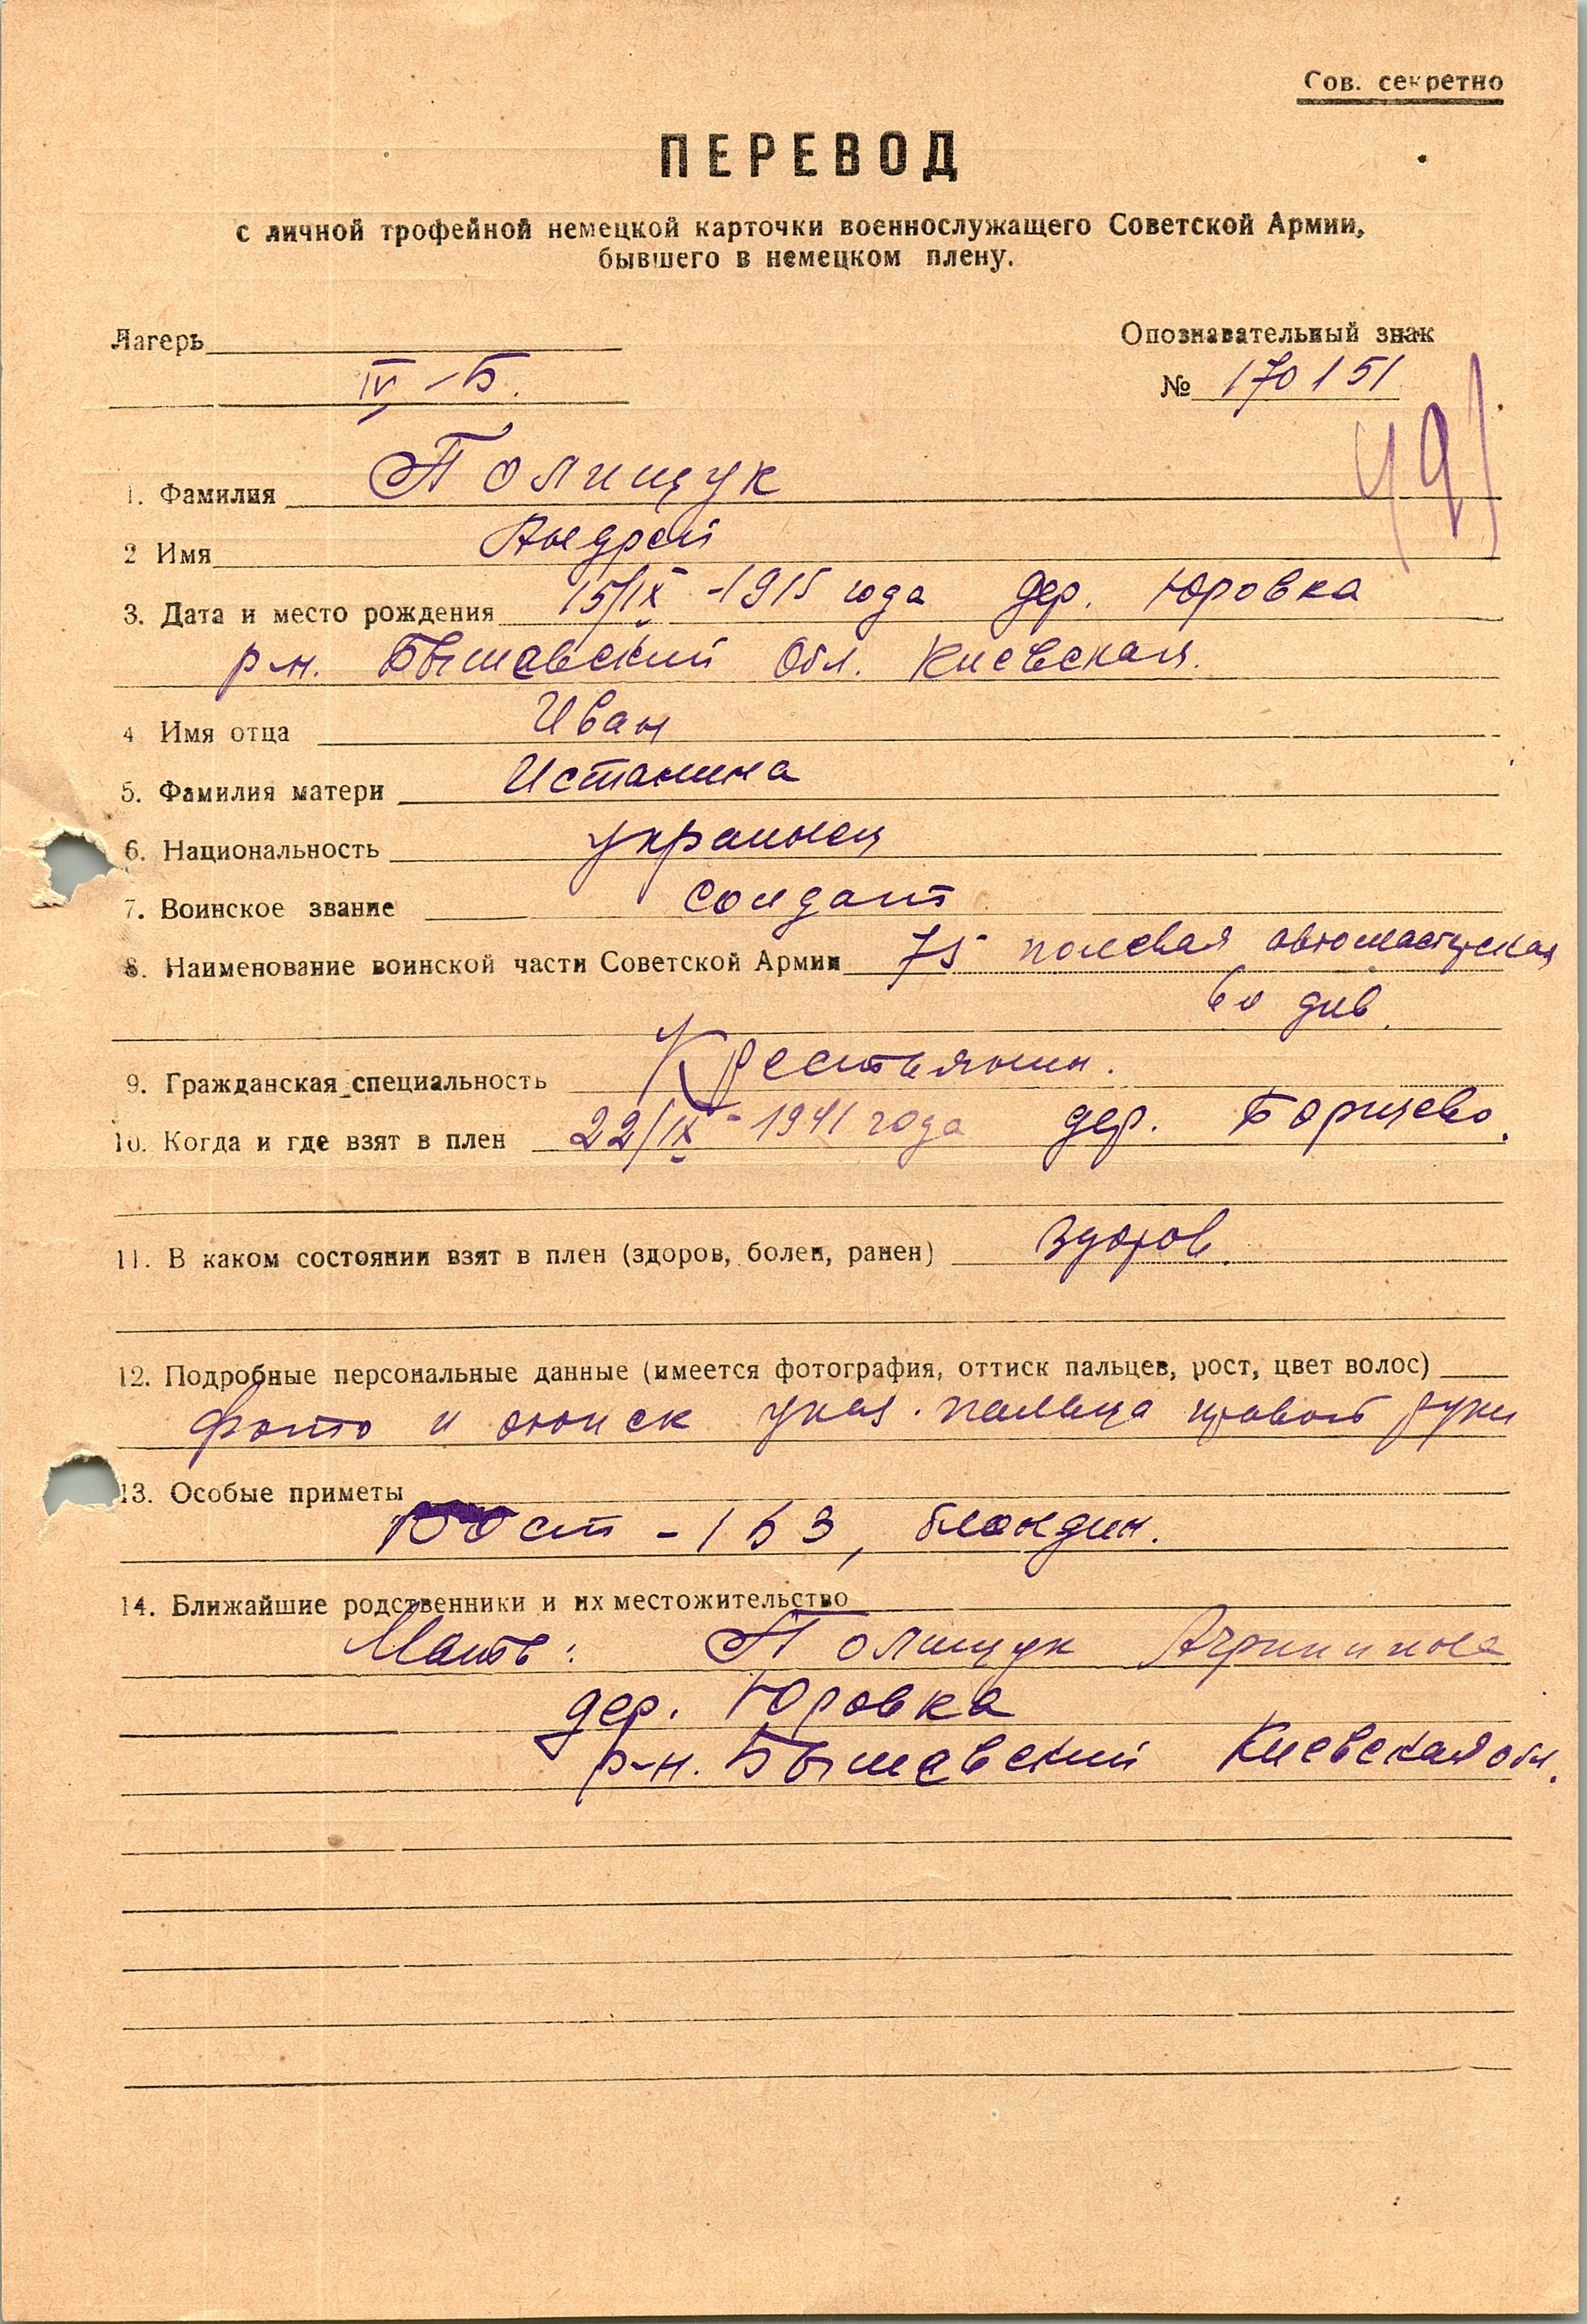 Сов. секретно
ПЕРЕВОД
с личной трофейной немецкой карточки военнослужащего Советской Армии,
бывшего в немецком плену.
Лагерь
IV-Б.
Опознавательный знак
№ 170151
491
1. Фамилия Полищук
2 Имя Андрей
3. Дата и место рождения 15/IX-1915 года дер. Юровка
р-н. Бышевский Обл. Киевская.
4 Имя отца Иван
5. Фамилия матери Истанина
6. Национальность украинец
7. Воинское звание солдат
8. Наименование воинской части Советской Армии 75 полевая
60 див.
9. Гражданская специальность Крестьянин.
10. Когда и где взят в плен 22/IX-1941 года дер. Борщево.
11. В каком состоянии взят в плен (здоров, болен, ранен) здоров.
12. Подробные персональные данные (имеется фотография, оттиск пальцев, рост, цвет волос)
фото и оттиск указ. пальца правой руки
13. Особые приметы
Рост - 153, блондин.
14. Ближайшие родственники и их местожительство
Мать: Полищук
дер. Юровка
р-н. Бышевский Киевская обл.